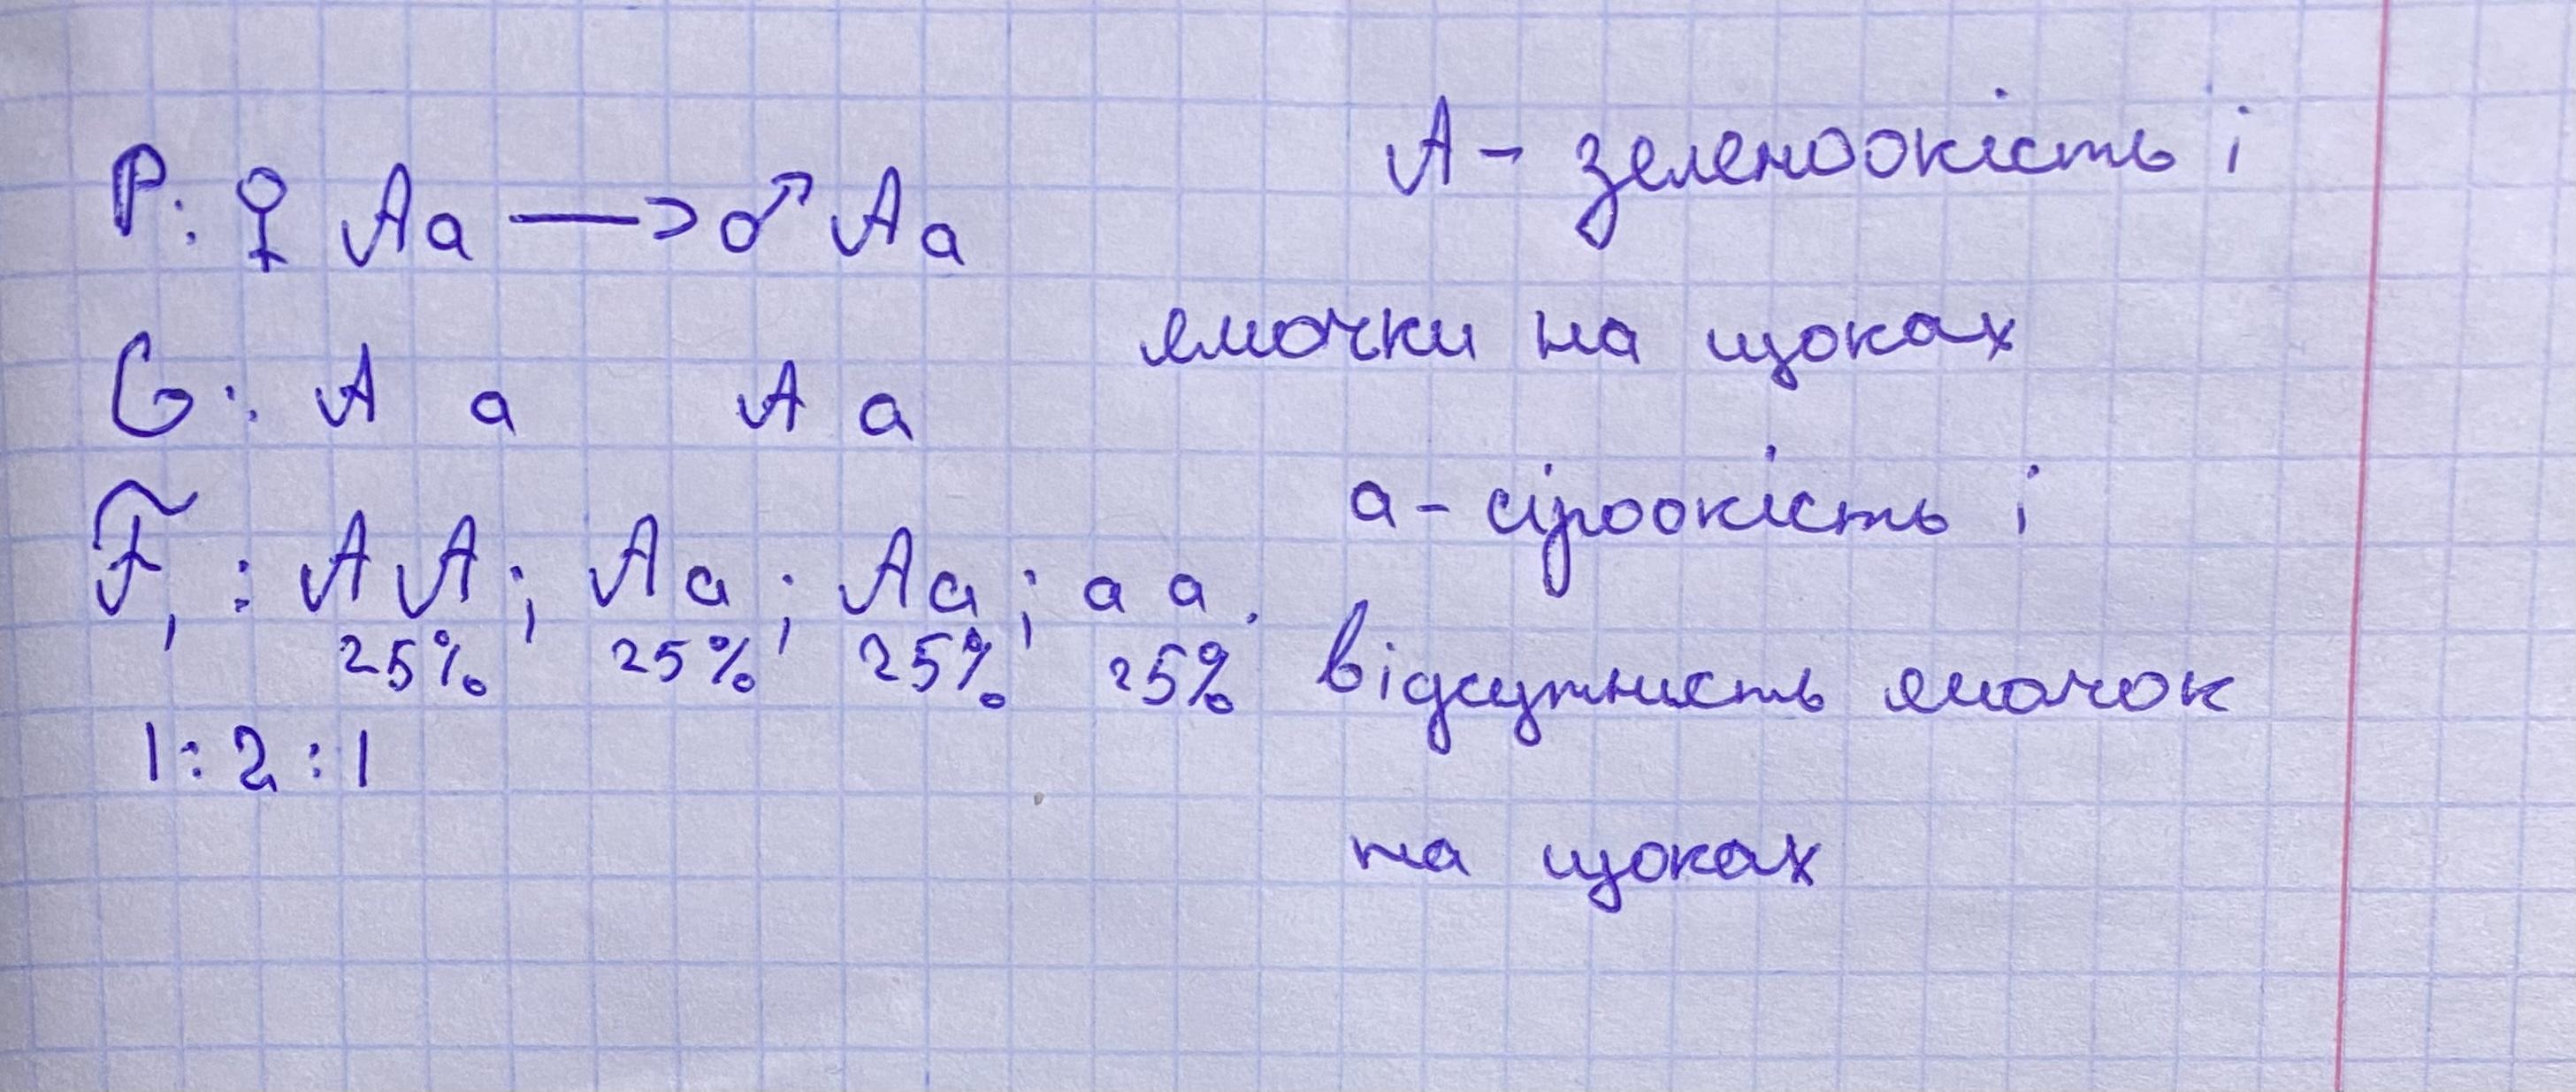 P: ♀ Aa —> ♂ Aa
G: A a A a
F₁: AA; Aa; Aa; aa.
25% 25% 25% 25%
1:2:1
A – зеленоокість і
ямочки на щоках
a – сіроокість і
відсутність ямочок
на щоках